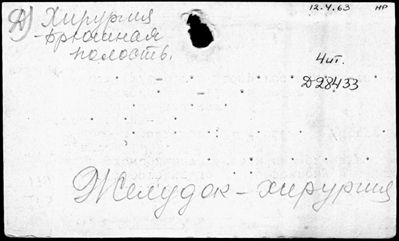 Д) Хирургия
-брюшная
полость.
12.4.63 НР
4 ит.
Д28433
Желудок-хирургия